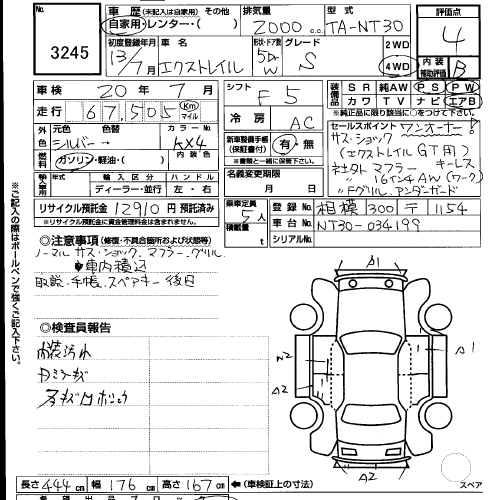 No.
3245
車歴 (未記入は自家用) その他
自家用・レンター・( )
排気量
2000 cc
型式
TA-NT30
評価点
4
初度登録年月
13/7月
車名
エクストレイル
形状・ドア数
5D W
グレード
S
2WD
4WD
内装
補助評価
B
車検 20年 7月
走行 67,505 Km マイル
シフト
F5
装備品
SR 純AW PS PW
カワ TV ナビ エアB
※純正品に限り該当に○をつけて下さい
外色
元色 色替
シルバー →
カラーNo.
KX4
内装色
燃料
ガソリン・軽油・( )
冷房
AC
新車整備手帳
(保証書付)
有・無
※書類と一緒に保管下さい。
セールスポイント ワンオーナー!
サス・ショック
(エクストレイル GT用)
社外 マフラー キーレス
〃 16インチ AW (ワーク)
〃 Fグリル、アンダーガード
輸入車用
年式 輸入区分 ハンドル
ディーラー・並行 左・右
名義変更期限
月 日
リサイクル預託金 12910 円 預託済み
※リサイクル預託金に資金管理金は含まず
乗車定員
5人
積載量
t
登録No. 相模 300 〒 1154
車台No. NT30-034199
シリアルNo.
◎注意事項 (修復・不具合箇所および状態等)
ノーマル サス・ショック、マフラー、グリル、
◆車内積込
取説、手帳、スペアキー 後日
◎検査員報告
内装汚れ
※ご記入の際はボールペンで強くご記入下さい。
A1
A1
W2
A2
A2
スペア
長さ 444cm 幅 176cm 高さ 167cm ←(車検証上の寸法)